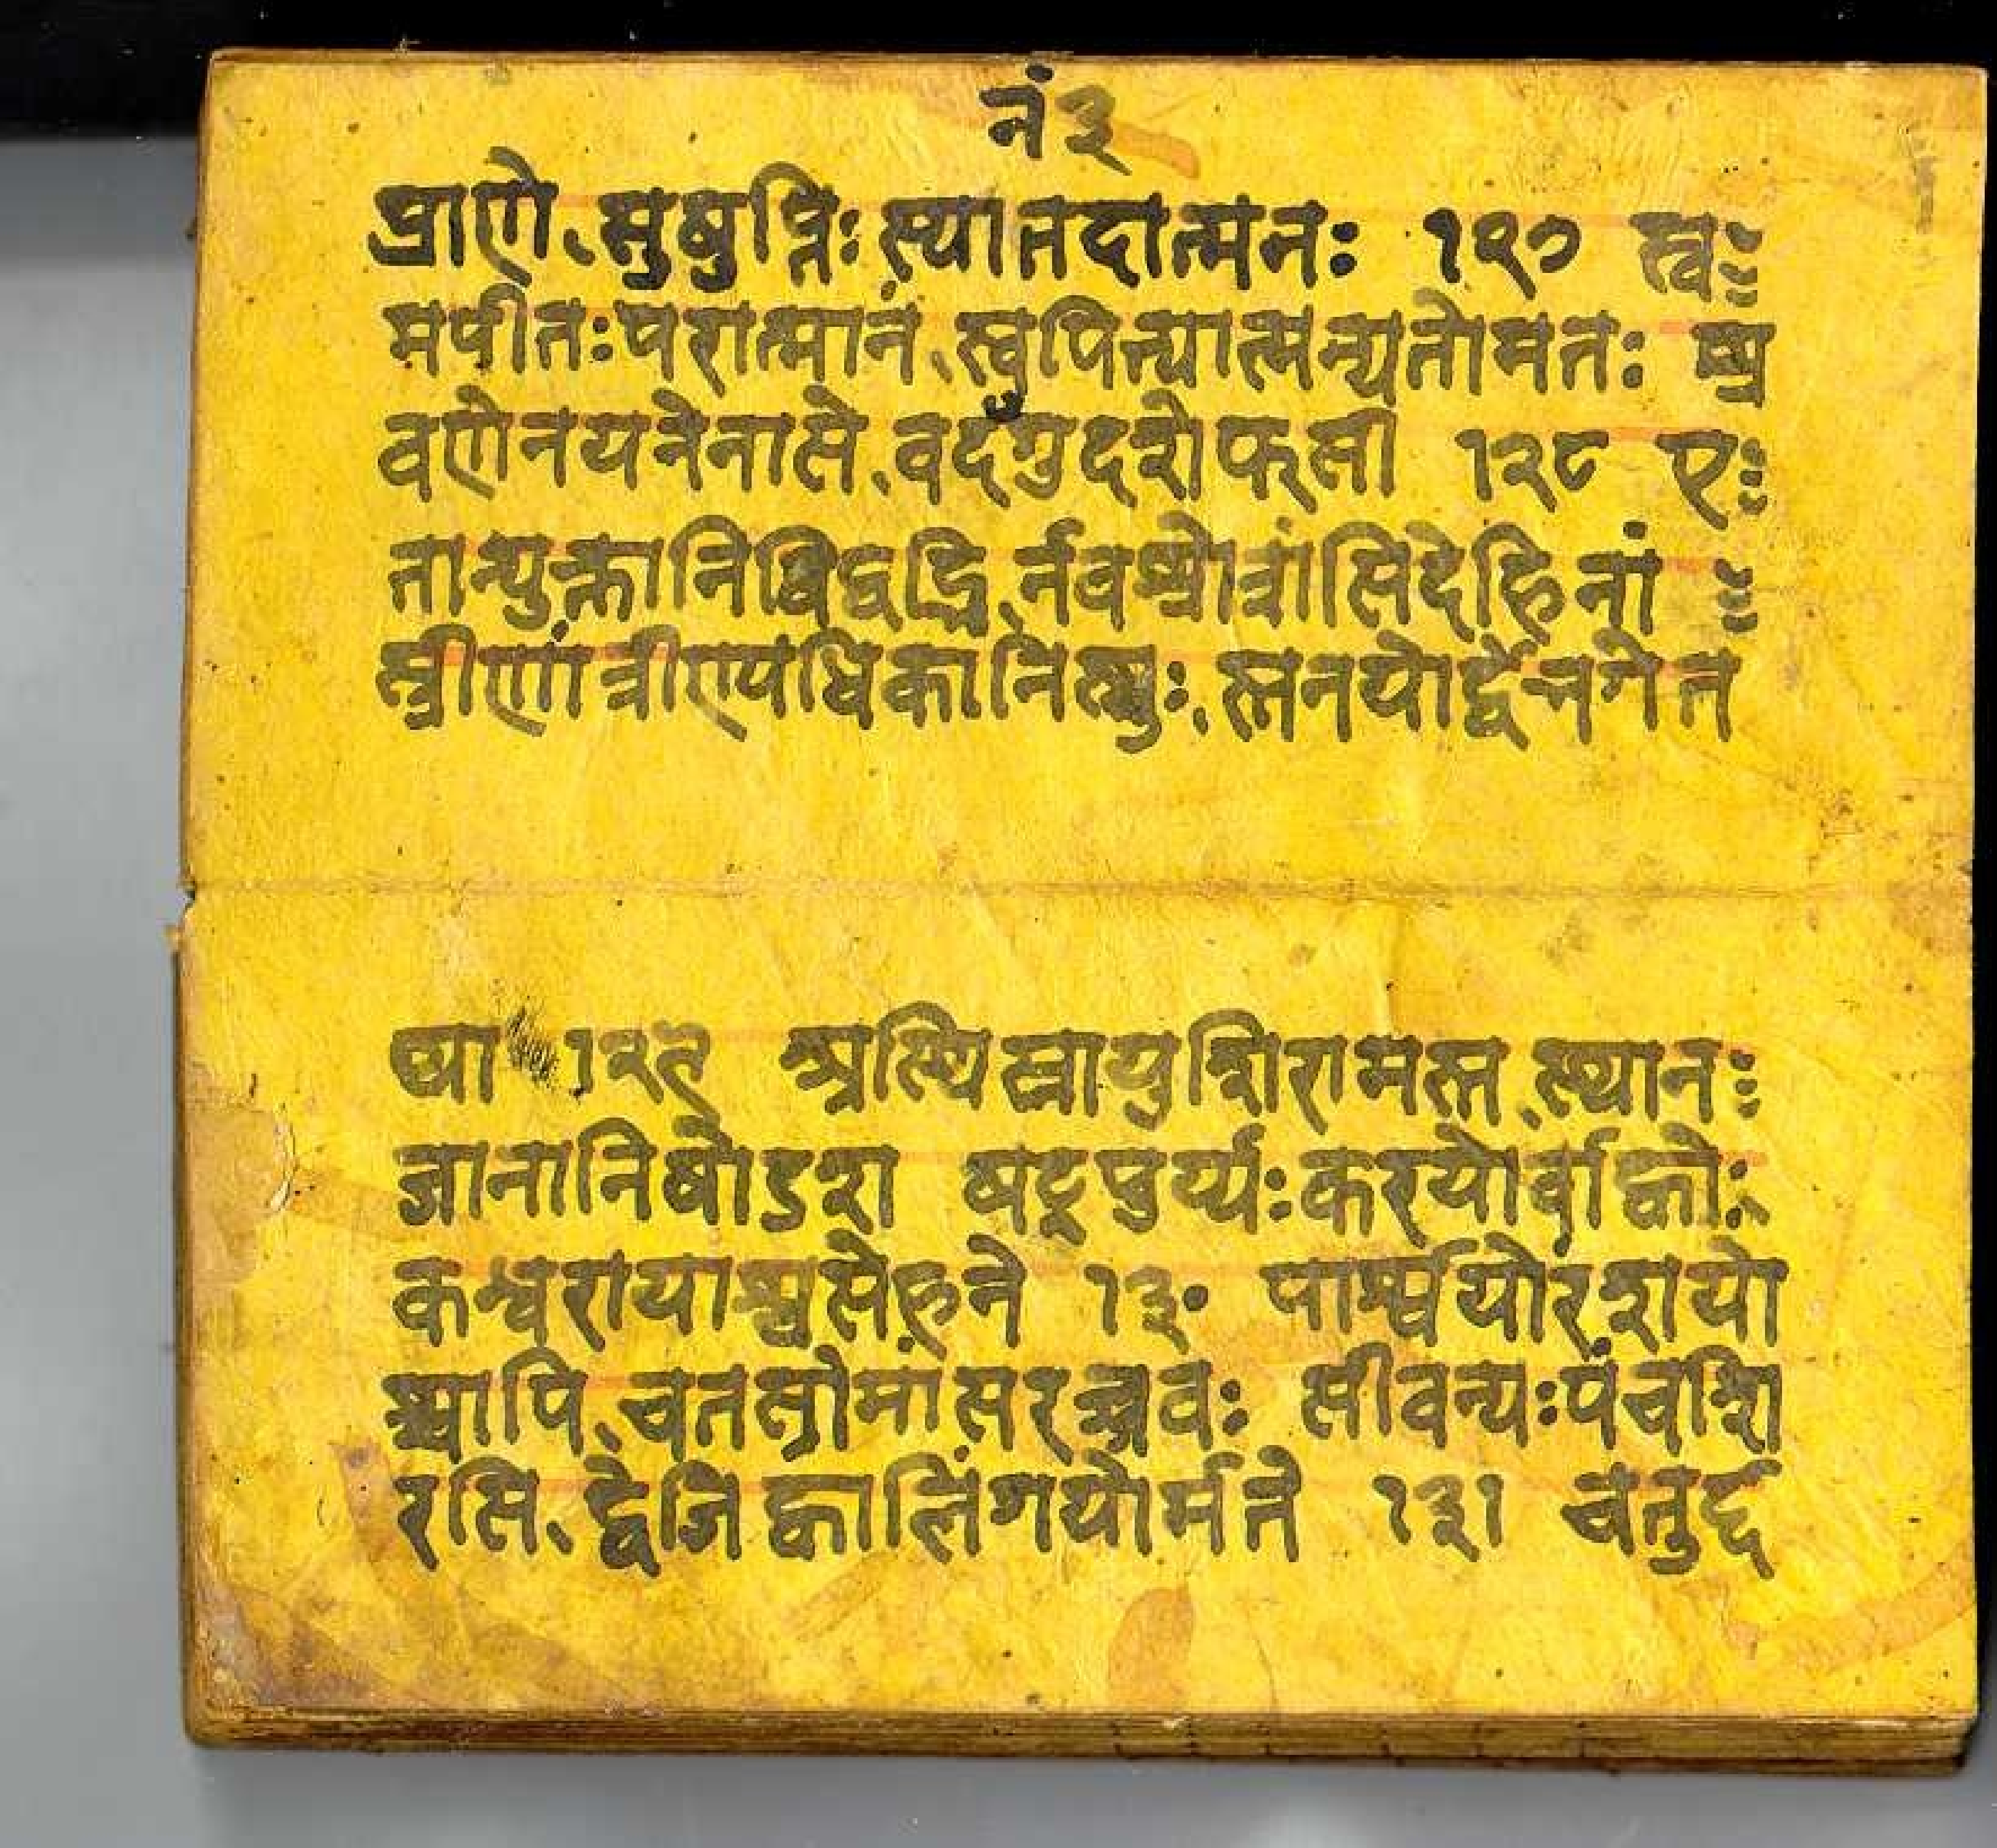 नं ३
प्राणे सुषुप्तिः स्यात्तदात्मनः १२७ स्वः
मपीतः परात्मानं स्वपित्यात्मन्यतो मतः श्र
वणे नयने नासे वदनं गुदशेफसी १२८ एः
तान्युक्तानि विद्वद्भि र्नव श्रोत्रांसि देहिनां
स्त्रीणां त्रीण्यधिकानि स्युः स्तनयोर्द्वे भगे त
था १२९ अस्थि स्नायु शिरा मांस स्थानः
जानानि षोडश षट् कूर्चाः करयोर्वाङ्घ्रोः
कन्धरायाश्च मेहने १३० पार्श्वयोरंशयो
श्चापि चतस्रो मांसरज्जवः सीवन्यः पंच शि
रसि द्वे जिह्वालिंगयोर्मते १३१ चतुर्द्द